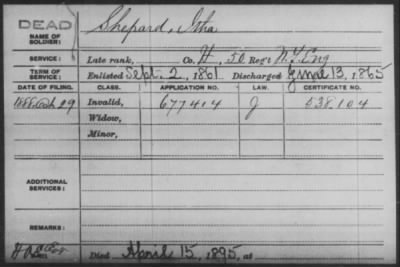 DEAD
NAME OF SOLDIER:
Shepard, Itha
SERVICE:
Late rank, Co. H, 50 Reg't N.Y. Eng
TERM OF SERVICE:
Enlisted Sept. 2, 1861 Discharged June 13, 1865
DATE OF FILING. CLASS. APPLICATION NO. LAW. CERTIFICATE NO.
1888 29 Invalid, 677414 J 538.104
Widow,
Minor,
ADDITIONAL SERVICES:
REMARKS:
Died April 15, 1895, at